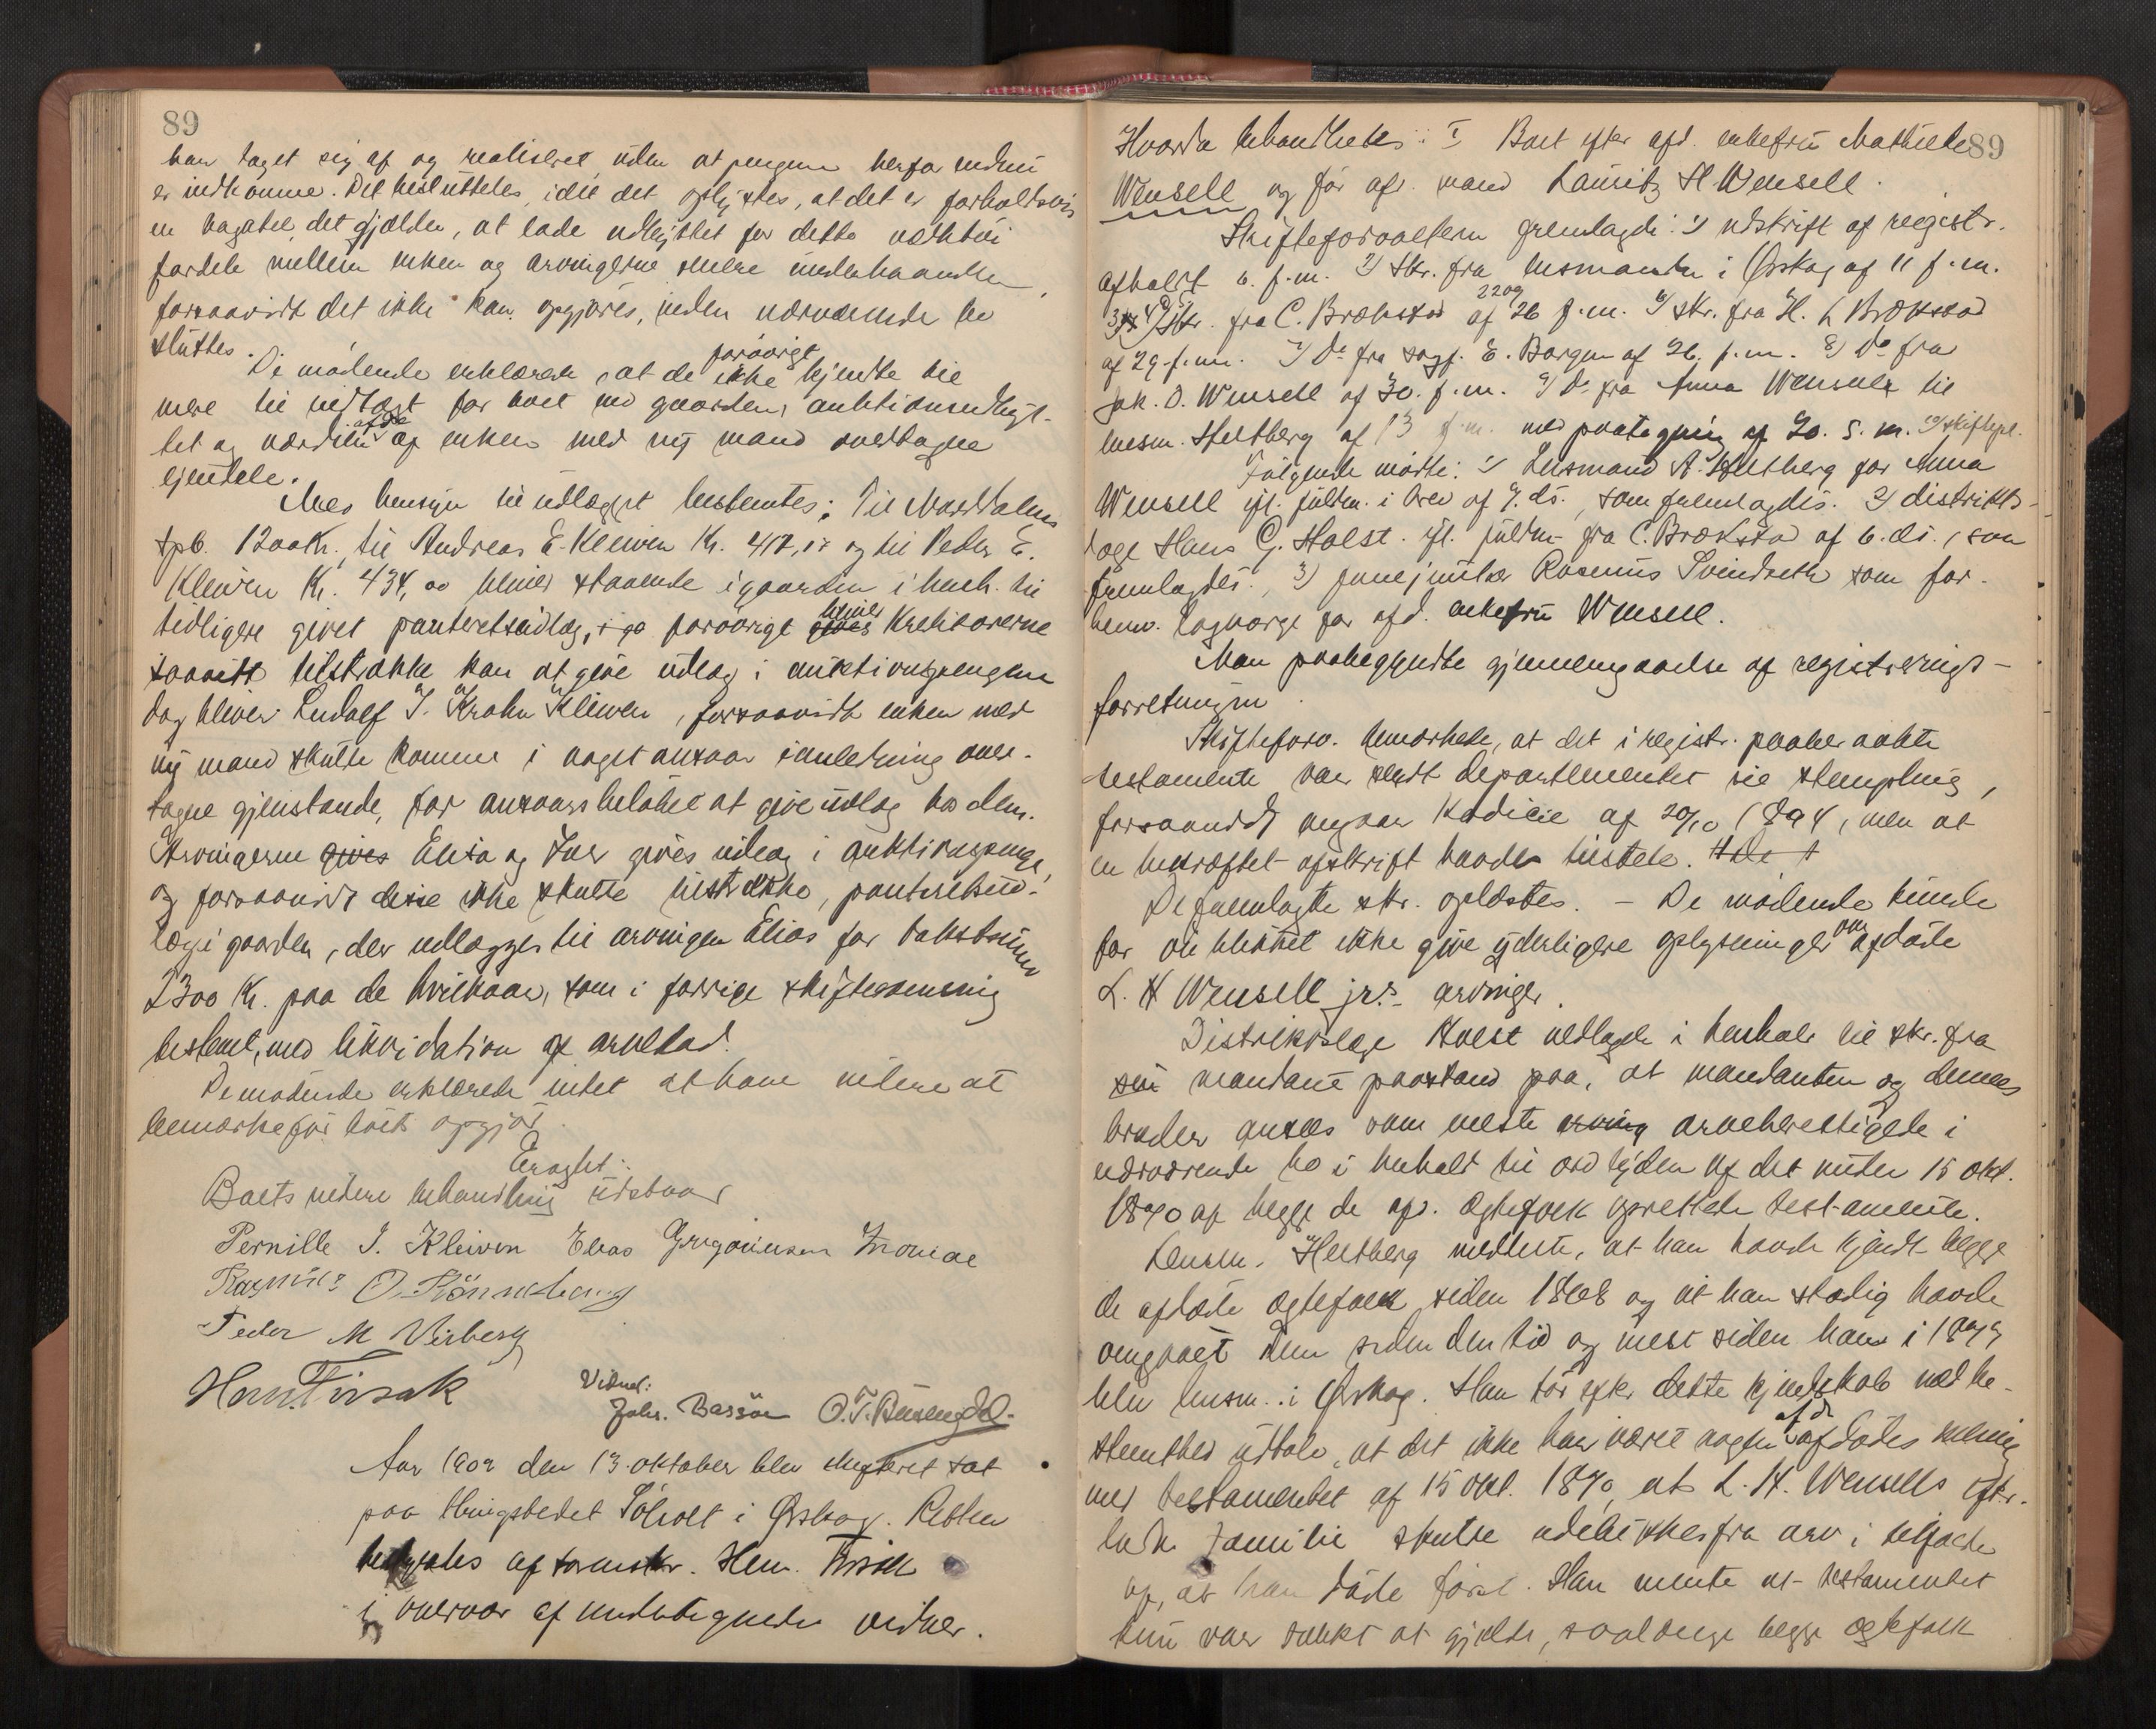 89
har taget sig af og realiseret uden at pengene herfor endnu
er indkomne. Det besluttedes, idet det oplystes, at det er forholdsvis
en bagatel, det gjælder, at lade udbyttet for dette
fordele mellem enken og arvingerne senere underhaanden,
forsaavidt det ikke kan opgjøres, inden nærværende bo
sluttes.
De mødende erklærede, at de forøvrigt ikke kjendte til
mere til indtægt for boet end gaarden, auktionsudbyt-
tet og værdien af de af enken med ny mand overtagne
ejendele.
Med hensyn til udlægget bestemtes: Til
spb. 1200 Kr. til Andreas E. Kleiven Kr. 417, og til Peder E.
Kleiven Kr. 434,00 bliver staaende i gaarden i henh. til
tidligere givet panteretsudlæg, forøvrigt bliver gives Kreditorerne
saavidt tilstrække kan at give udlæg i auktionspengene
dog bliver Ludolf I. Krohn Kleiven, forsaavidt enken med
ny mand skulde komme i noget ansvar i anledning over-
tagne gjenstande, for ansvarsbeløbet at give udlæg hos dem.
Arvingerne gives Elias og Iver gives udlæg i auktionspenge,
og forsaavidt disse ikke skulle tilstrække, panteretsud-
læg i gaarden, der udlægges til arvingen Elias for takstsummen
2300 Kr. paa de hvilkaar, som i forrige skiftesamling
bestemt, med likvidation af arvelod.
De mødende erklærede intet at have videre at
bemærke før boets opgjør.
Eragtet:
Boets videre behandling udstaar
Pernille I. Kleiven Elias
Rasmus O. Rönneberg
Peder M Viiberg
Hem. Fixsak
Vidner:
Johs. Bassöe O. T.
Aar 1902 den 13. oktober blev skifteret sat
paa thingstedet Sölvolt i Ørskog. Retten
betjentes af sorenskr. Hem.
i overvær af undertegnede vidner.
Hvorda behandledes: I Boet efter afd. enkefru Mathilde 89
Wensell og før afd. mand Lauritz H. Wensell.
Skifteforvalteren fremlagde: 1) udskrift af registr.
afholdt 6. f.m. 2) Skr. fra lensmanden i Ørskog af 11 f.m.
3) 4) 5) Skr. fra C. Brækstad af 22 og 26 f.m. 6) Skr. fra H. L Brækstad
af 29. f.m. 7) Do fra sagf. E. Borgen af 26. f.m. 8) Do fra
Jak. O. Wensell af 30. f.m. 9) Do fra Anna Wensell til
lensm. Heltberg af 13 f.m. med paategning af 20. s. m.
Følgende mødte: 1) Lensmand A. Heltberg for Anna
Wensell ifl. fuldm. i brev af 9. ds., som fremlagdes. 2) distrikts-
læge Hans G. Holst. ifl. fuldm. fra C. Brækstad af 6. ds., som
fremlagdes. 3) Rasmus Svindseth som for-
henv. lagværge for afd. enkefru Wensell.
Man paabegyndte gjennemgaaelse af registrerings-
forretningen.
Skifteforv. bemærkede, at det i registr. paaberaabte
testamente var sendt departementet til stempling,
forsaavidt angaar Kodicil af 20/10 1894, men at
en bekræftet afskrift havdes tilstede. De
De fremlagte skr. oplæstes. - De mødende kunde
for øieblikket ikke give yderligere oplysninger om afdøde
L. H Wensell jr.s arvinger.
Distriktslæge Holst nedlagde i henhold til skr. fra
sin mandant paastand paa, at mandanten og dennes
broder ansees som neste arving arveberettigede i
nærværende bo i henhold til ordlyden af det under 15 okt.
1890 af begge de afd. ægtefolk oprettede testamente.
Lensm. Heltberg meddelte, at han havde kjendt begge
de afdøde ægtefolk siden 1868 og at han stadig havde
omgaaet dem siden den tid og mest siden han i 1879
blev lensm. i Ørskog. Han tør efter dette kjendskab med be-
stemthed udtale, at det ikke har været nogen af de afdødes mening
med testamentet af 15 okt. 1890, at L. H. Wensells efter-
ladte familie skulde udelukkes fra arv i tilfælde
af, at han døde først. Han mente at testamentet
kun var tænkt at gjælde, saalænge begge ægtefolk